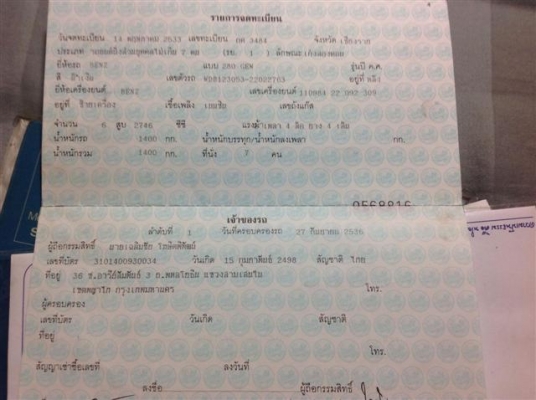 รายการจดทะเบียน
วันจดทะเบียน 14 พฤษภาคม 2533 เลขทะเบียน 3484 จังหวัด เชียงราย
ประเภท รถยนต์นั่งส่วนบุคคลไม่เกิน 7 คน (รย. 1) ลักษณะ เก๋งสองตอน
ยี่ห้อรถ BENZ แบบ 280 GEN รุ่นปี ค.ศ.
สี เลขตัวรถ อยู่ที่
ยี่ห้อเครื่องยนต์ BENZ เลขเครื่องยนต์ 110984 22 092 309
อยู่ที่ เชื้อเพลิง เบนซิน เลขถังแก๊ส
จำนวน 6 สูบ 2746 ซีซี แรงม้า เพลา 4 ล้อ ยาง 4 เส้น
น้ำหนักรถ 1400 กก. น้ำหนักบรรทุก/น้ำหนักลงเพลา กก.
น้ำหนักรวม 1400 กก. ที่นั่ง 7 คน
เจ้าของรถ
ลำดับที่ 1 วันที่ครอบครองรถ 27 กันยายน
ผู้ถือกรรมสิทธิ์ นายเฉลิมชัย โฆษิตพิพัฒน์
เลขที่บัตร 3101400930034 วันเกิด 15 กุมภาพันธ์ 2498 สัญชาติ ไทย
ที่อยู่ ถ.พหลโยธิน แขวงสามเสนใน
เขตพญาไท กรุงเทพมหานคร โทร.
ผู้ครอบครอง
เลขที่บัตร วันเกิด สัญชาติ
ที่อยู่
โทร.
สัญญาเช่าซื้อเลขที่ ลงวันที่
ลงชื่อ ผู้ถือกรรมสิทธิ์